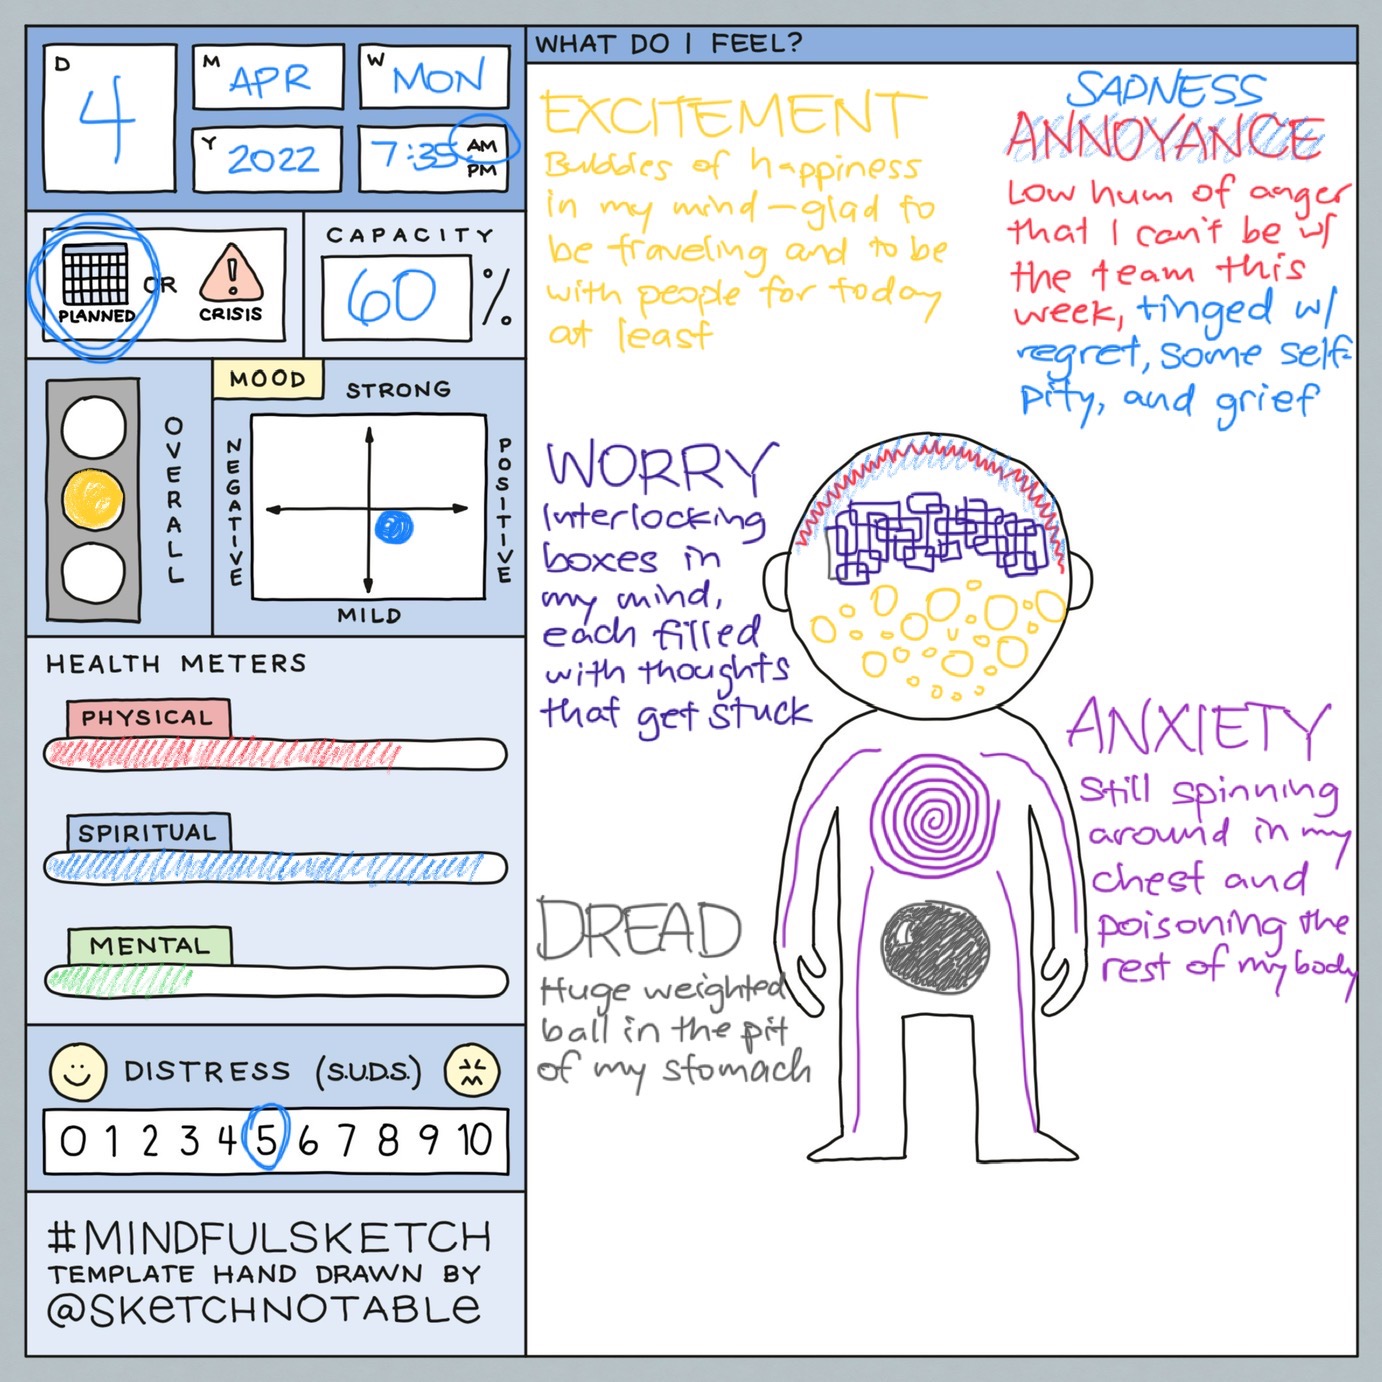 D
4
M
APR
W
MON
Y
2022
7:35
AM
PM
PLANNED
OR
CRISIS
CAPACITY
60 %
OVERALL
MOOD
STRONG
NEGATIVE
POSITIVE
MILD
HEALTH METERS
PHYSICAL
SPIRITUAL
MENTAL
DISTRESS (S.U.D.S.)
0 1 2 3 4 5 6 7 8 9 10
#MINDFULSKETCH
TEMPLATE HAND DRAWN BY
@SKETCHNOTABLE
WHAT DO I FEEL?
EXCITEMENT
Bubbles of happiness
in my mind—glad to
be traveling and to be
with people for today
at least
SADNESS
ANNOYANCE
Low hum of anger
that I can't be w/
the team this
week, tinged w/
regret, some self-
pity, and grief
WORRY
Interlocking
boxes in
my mind,
each filled
with thoughts
that get stuck
ANXIETY
Still spinning
around in my
chest and
poisoning the
rest of my body
DREAD
Huge weighted
ball in the pit
of my stomach